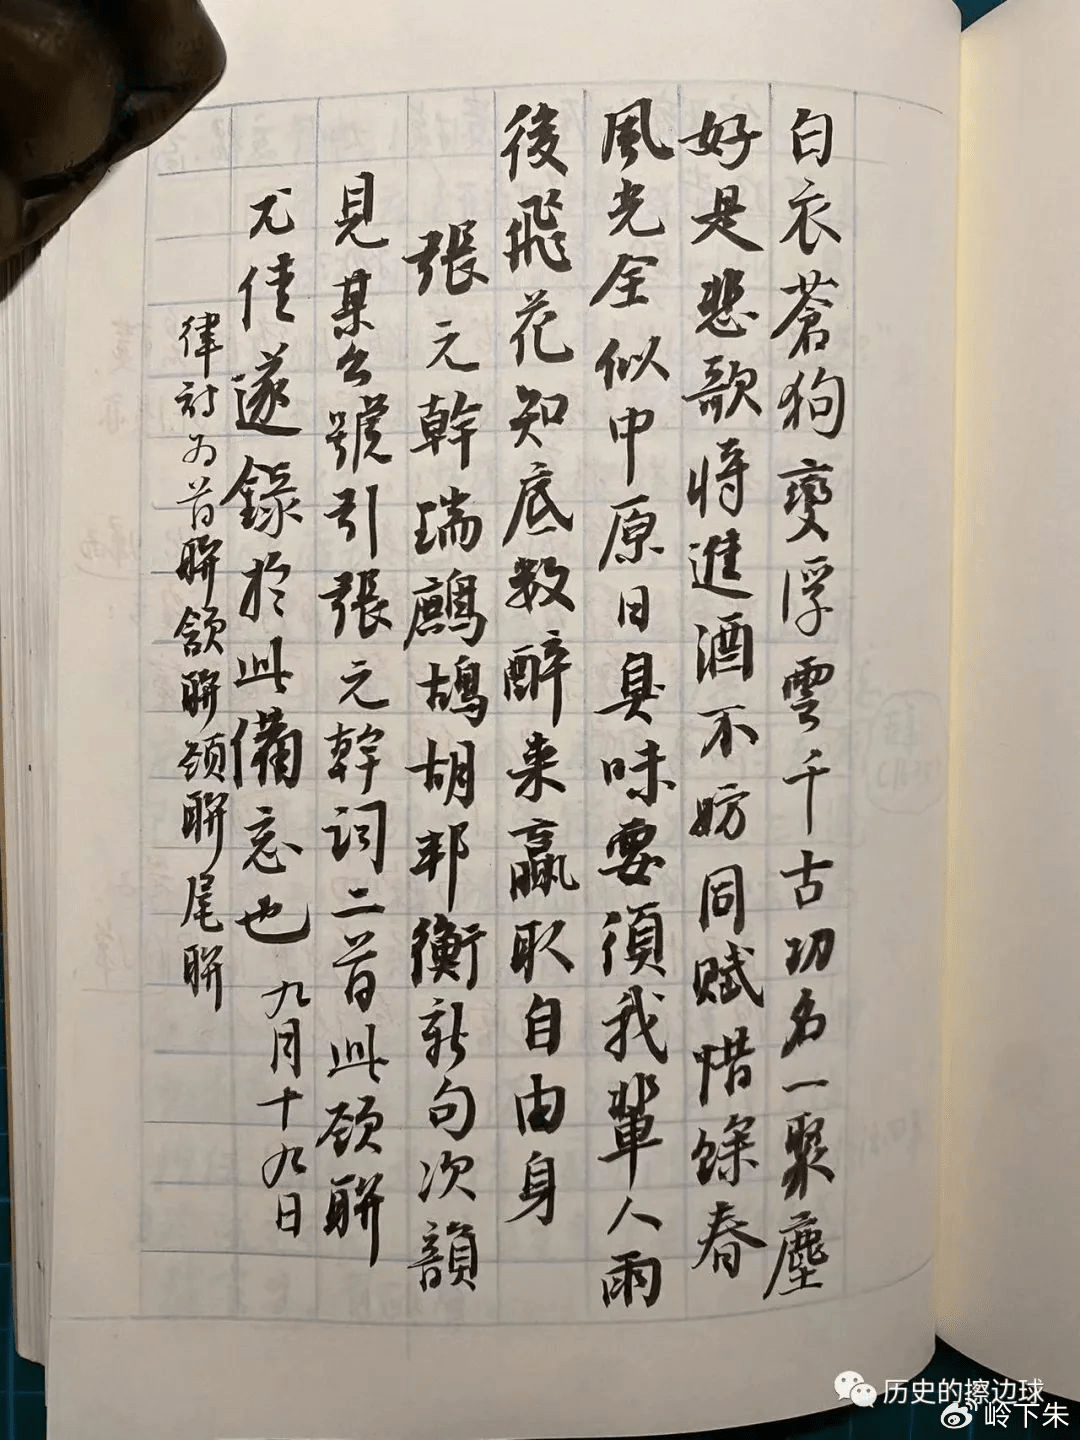 白衣蒼狗變浮雲千古功名一聚塵
好是悲歌將進酒不妨同賦惜餘春
風光全似中原日臭味要須我輩人雨
後飛花知底數醉来贏取自由身
張元幹瑞鷓鴣胡邦衡新句次韻
見某公號引張元幹詞二首此頷聯
尤佳遂錄於此備忘也 九月十九日
律詩为首聯頷聯頸聯尾聯
历史的擦边球
岭下朱